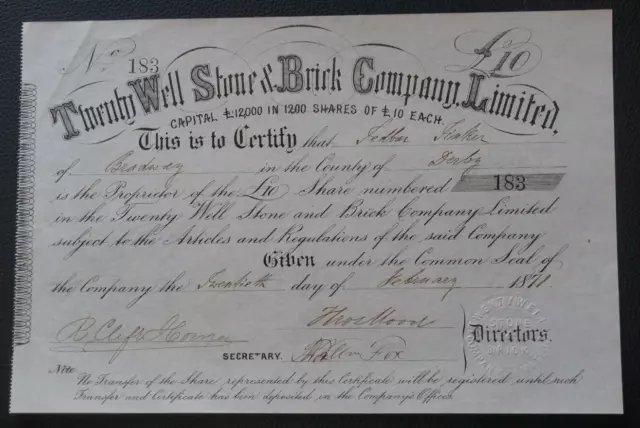 No. 183 £10
Twenty Well Stone & Brick Company, Limited.
CAPITAL £12,000 IN 1200 SHARES OF £10 EACH.
This is to Certify that
of Bradway in the County of Derby
is the Proprietor of the £10 Share numbered 183
in the Twenty Well Stone and Brick Company Limited
subject to the Articles and Regulations of the said Company
Given under the Common Seal of
the Company the Twentieth day of February 1871
Thos Wood
R. Clift Horner
Directors.
SECRETARY. Fox
Note
No Transfer of the Share represented by this Certificate will be registered until such
Transfer and Certificate has been deposited in the Company's Offices.